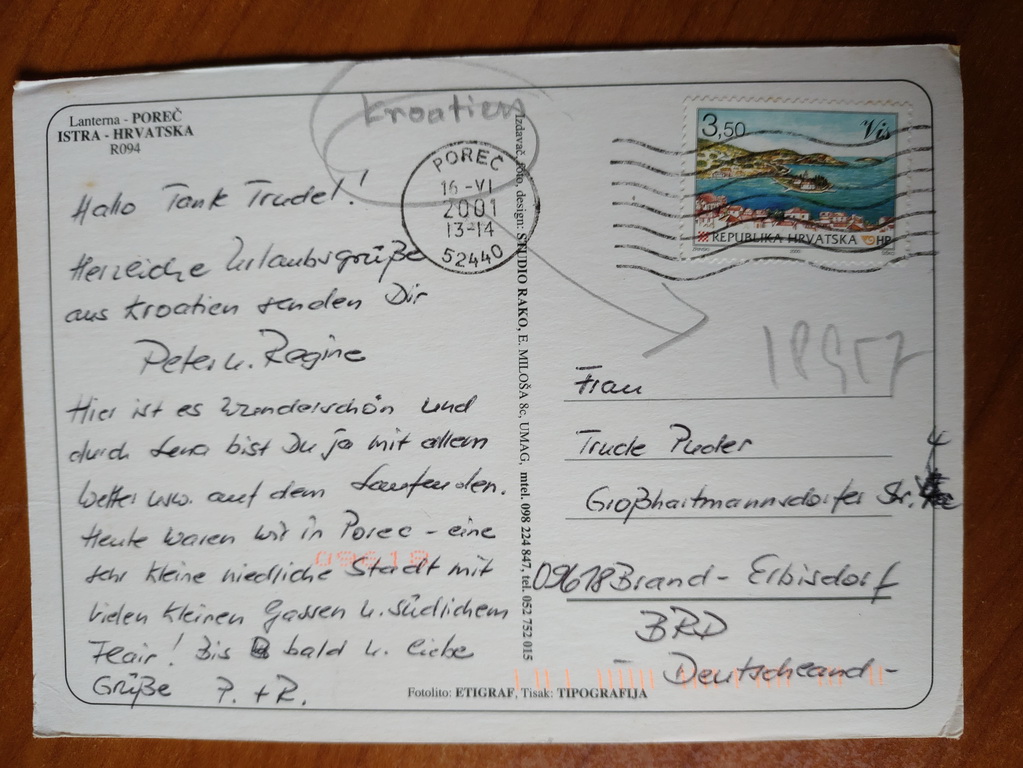 Lanterna - POREČ
ISTRA - HRVATSKA
R094
Kroatien
Hallo Tante Trudel!
Herzliche Urlaubsgrüße
aus Kroatien senden Dir
Peter u. Regine
Hier ist es wunderschön und
durch Lena bist Du ja mit allem
Wetter usw. auf dem Laufenden.
Heute waren wir in Porec - eine
sehr kleine niedliche Stadt mit
vielen kleinen Gassen u. südlichem
Flair! Bis bald u. liebe
Grüße P. + R.
09618
POREČ
16 -VI
2001
13-14
52440
Izdavač, foto, design: STUDIO RAKO, E. MILOŠA 8c, UMAG, mtel. 098 224 847, tel. 052 752 015
3,50 Vis
REPUBLIKA HRVATSKA HP
Frau
Trude Puder
Großhartmannsdorfer Str. 4
09618 Brand-Erbisdorf
BRD
- Deutschland -
Fotolito: ETIGRAF, Tisak: TIPOGRAFIJA